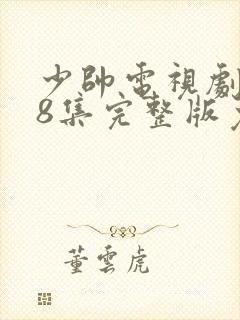 少帥電視劇
8集完整版
董雲虎